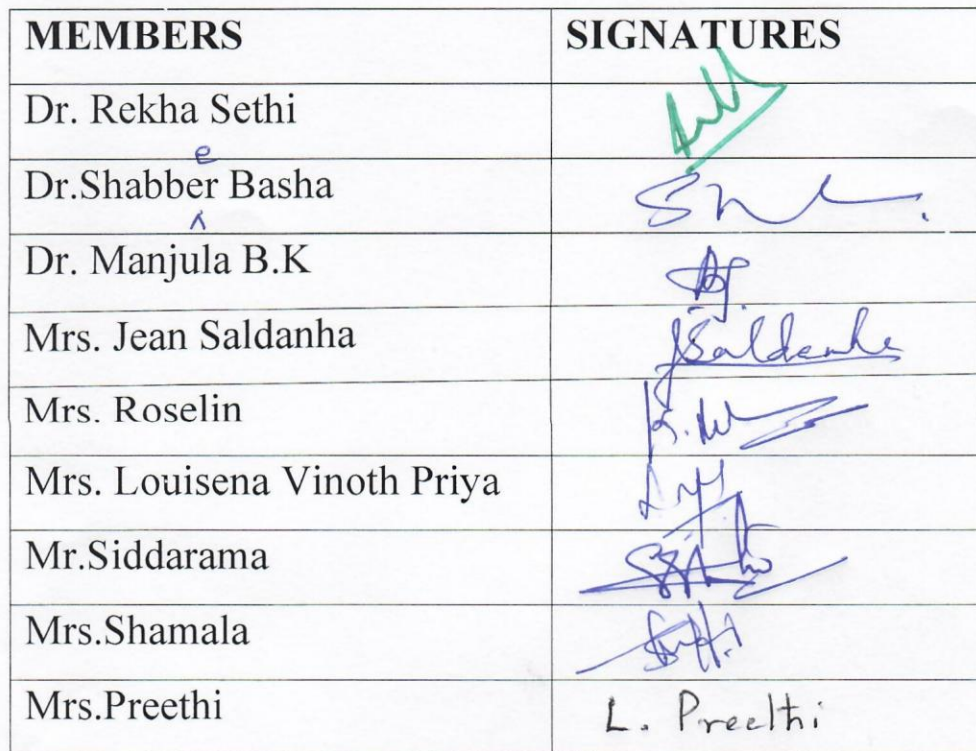 MEMBERS SIGNATURES
Dr. Rekha Sethi
e
Dr.Shabber Basha
Dr. Manjula B.K
Mrs. Jean Saldanha JSaldanha
Mrs. Roselin
Mrs. Louisena Vinoth Priya
Mr.Siddarama
Mrs.Shamala
Mrs.Preethi L. Preethi